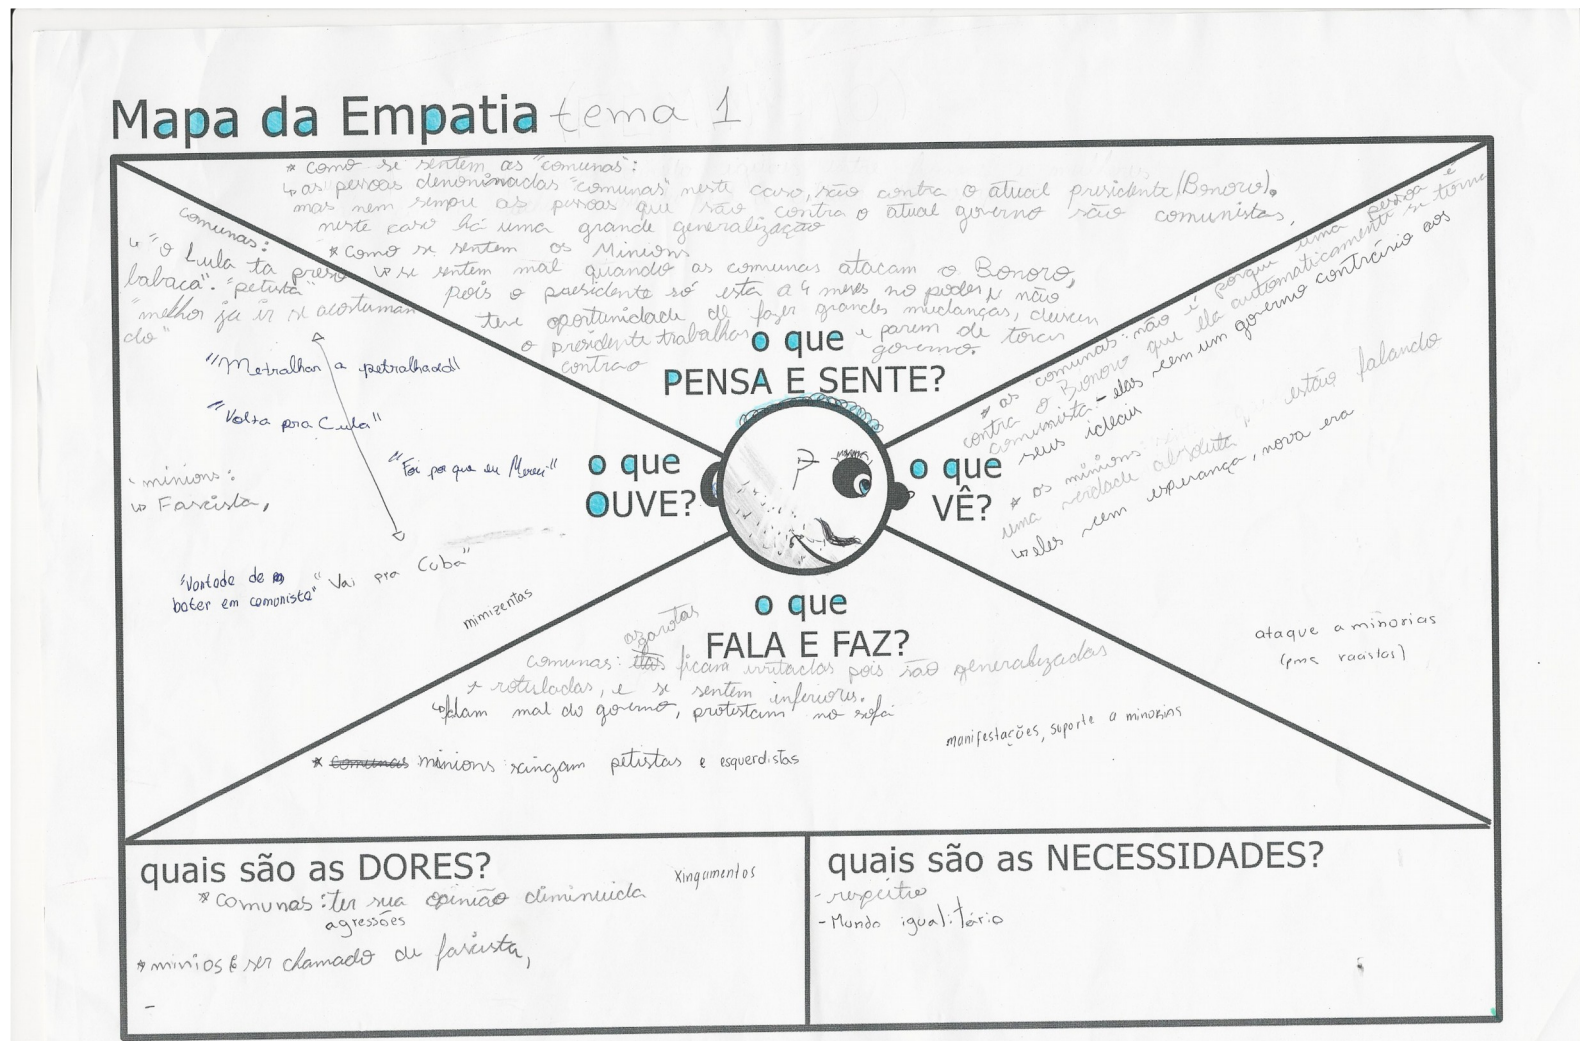 Mapa da Empatia tema 1
* Como se sentem as "comunas":
↳ as pessoas denominadas "comunas" neste caso, são contra o atual presidente (Bonoro).
mas nem sempre as pessoas que são contra o atual governo são comunistas,
neste caso há uma grande generalização
* Como se sentem os Minions
↳ se sentem mal quando as comunas atacam o Bonoro,
pois o presidente só esta a 4 meses no poder, e não
teve oportunidade de fazer grandes mudanças, deixem
o presidente trabalhar e parem de torcer
contra o governo.
o que
PENSA E SENTE?
comunas:
↳ "o Lula ta preso
babaca". "petista"
"melhor ja ir se acostuman
do"
"Metralhar a petralhada"
"Volta pra Cuba"
"Foi por que eu Mereci"
minions:
↳ Fascista,
"Vontade de
bater em comunista" "Vai pra Cuba"
o que
OUVE?
o que
VÊ?
* as comunas: não é porque uma pessoa é
contra o Bonoro que ela automaticamente se torna
comunista - elas veem um governo contrário aos
seus ideais
* os minions estão falando
uma verdade absoluta
↳ eles veem esperança, nova era
ataque a minorias
(pms racistas)
o que
FALA E FAZ?
mimizentas
as garotas
comunas: elas ficam irritadas pois são generalizadas
+ rotuladas, e se sentem inferiores.
↳ falam mal do governo, protestam no sofá
manifestações, suporte a minorias
* comunas minions xingam petistas e esquerdistas
quais são as DORES?
xingamentos
* comunas: ter sua opinião diminuida
agressões
* minios: ser chamado de fascista,
-
quais são as NECESSIDADES?
- respeito
- Mundo igualitário